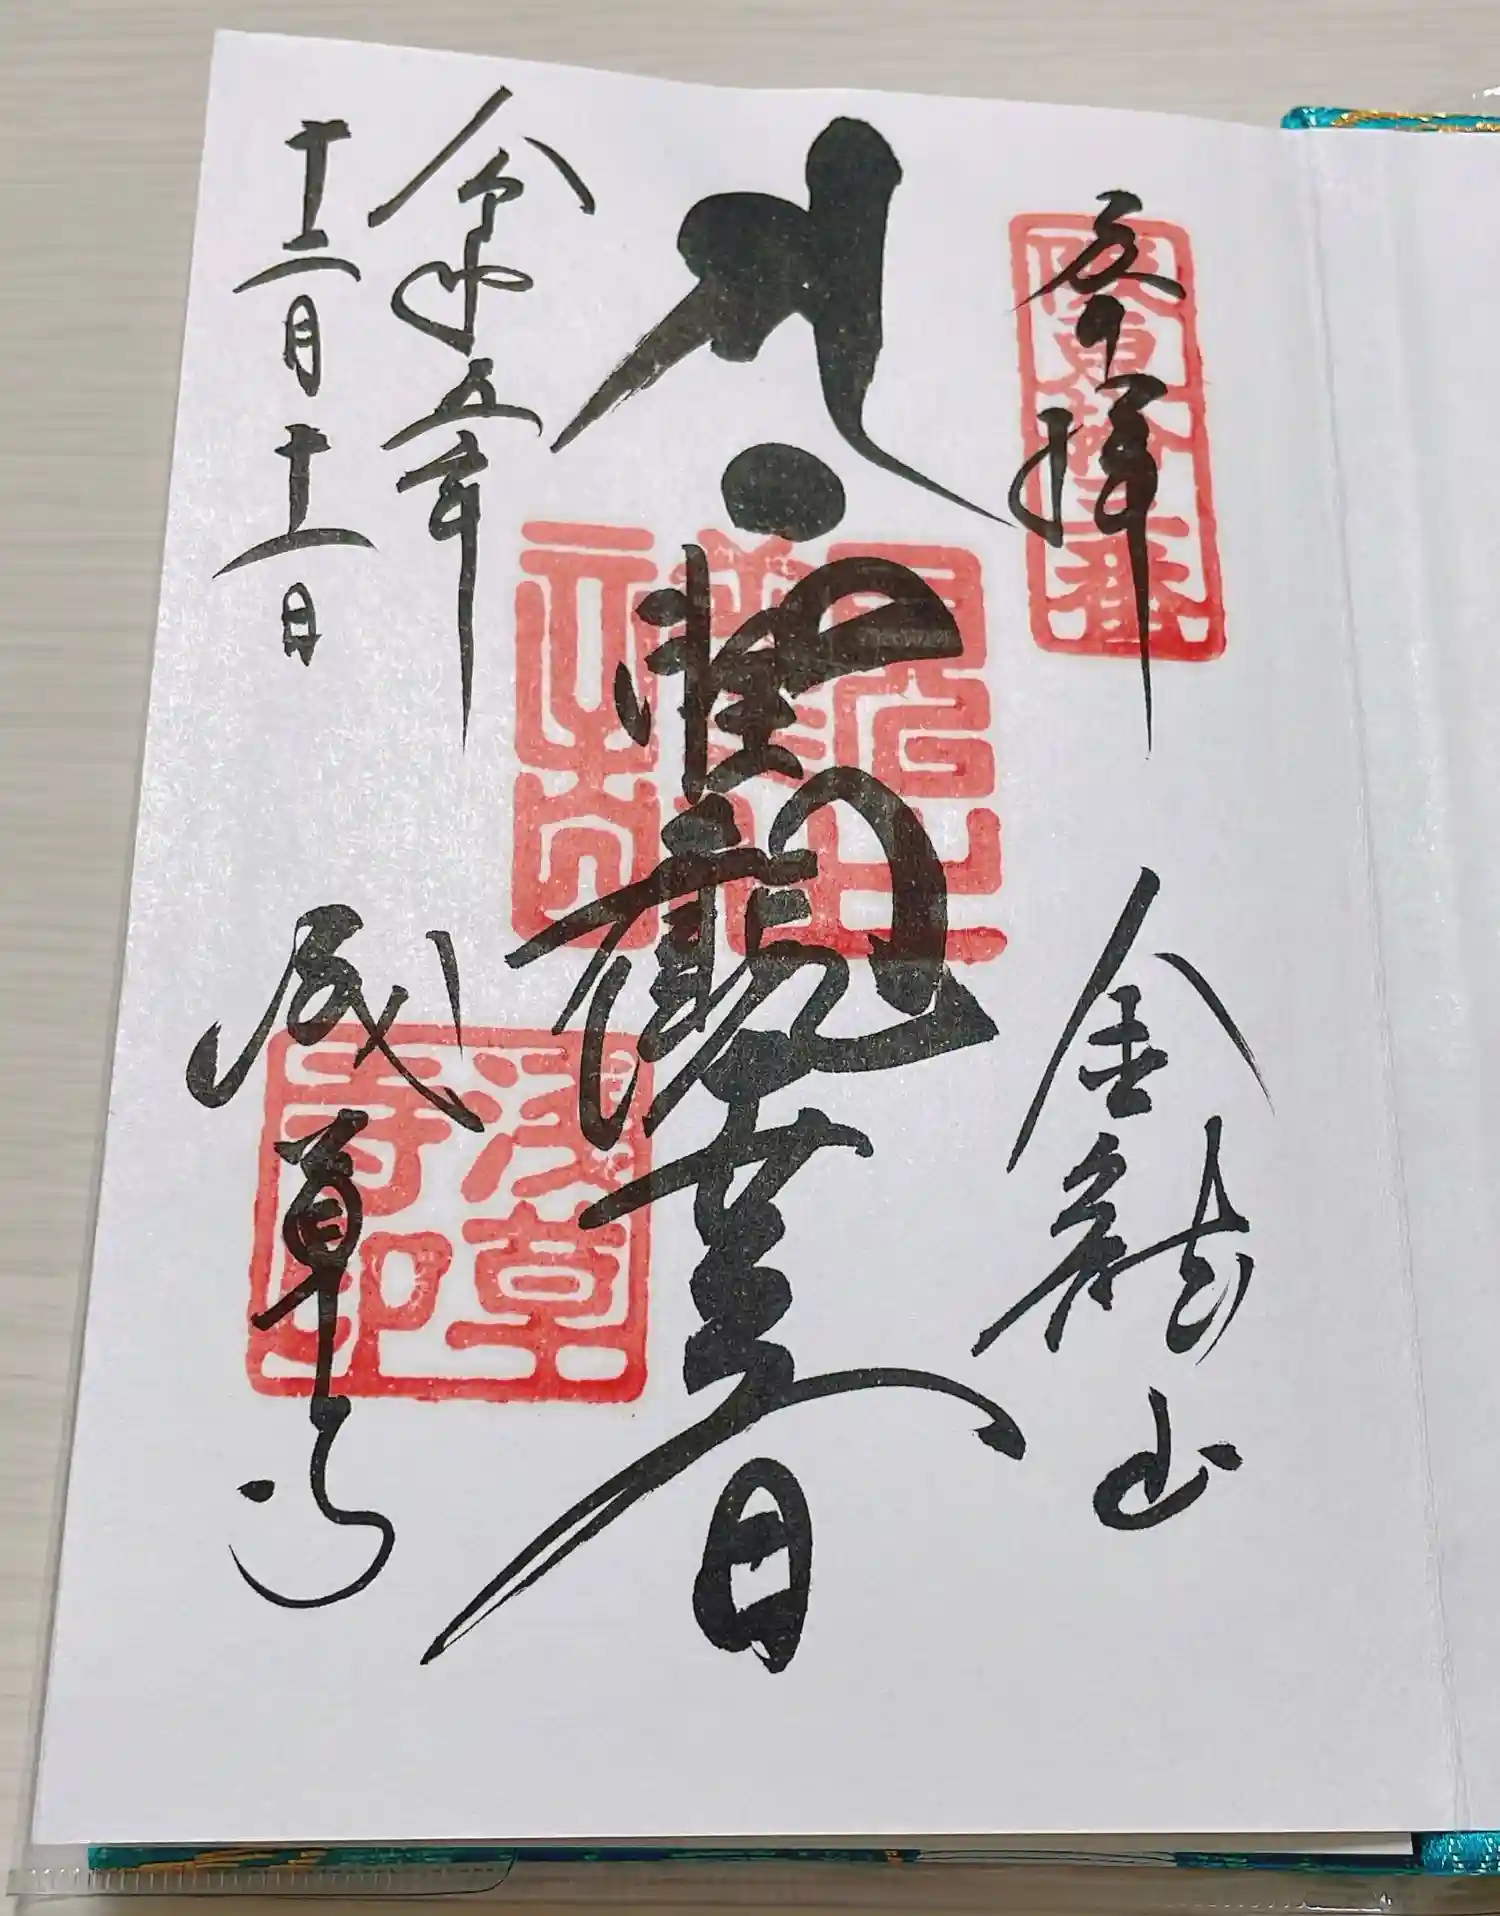 奉拝
坂東拾三番
金龍山
聖観世音
令和五年
十二月十一日
浅草寺
浅草寺印